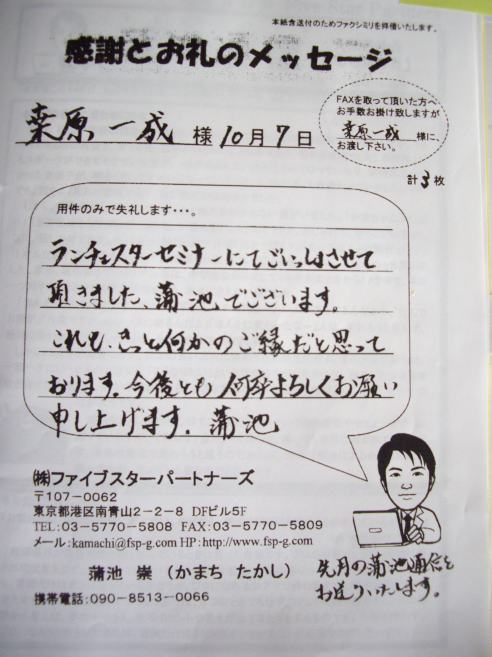 本紙含送付のためファクシミリを拝借いたします。
感謝とお礼のメッセージ
FAXを取って頂いた方へ
お手数お掛け致しますが
桒原一成 様に
お渡し下さい。
桒原 一成 様 10月7日
計3枚
用件のみで失礼します・・・。
ランチェスターセミナーにてごいっしょさせて
頂きました、蒲池でございます。
これも、きっと何かのご縁だと思って
おります。今後とも何卒よろしくお願い
申し上げます。蒲池
㈱ファイブスターパートナーズ
〒107-0062
東京都港区南青山2-2-8 DFビル5F
TEL:03-5770-5808 FAX:03-5770-5809
メール:kamachi@fsp-g.com HP:http://www.fsp-g.com
蒲池 崇 (かまち たかし)
携帯電話:090-8513-0066
先月の蒲池通信を
お送りいたします。